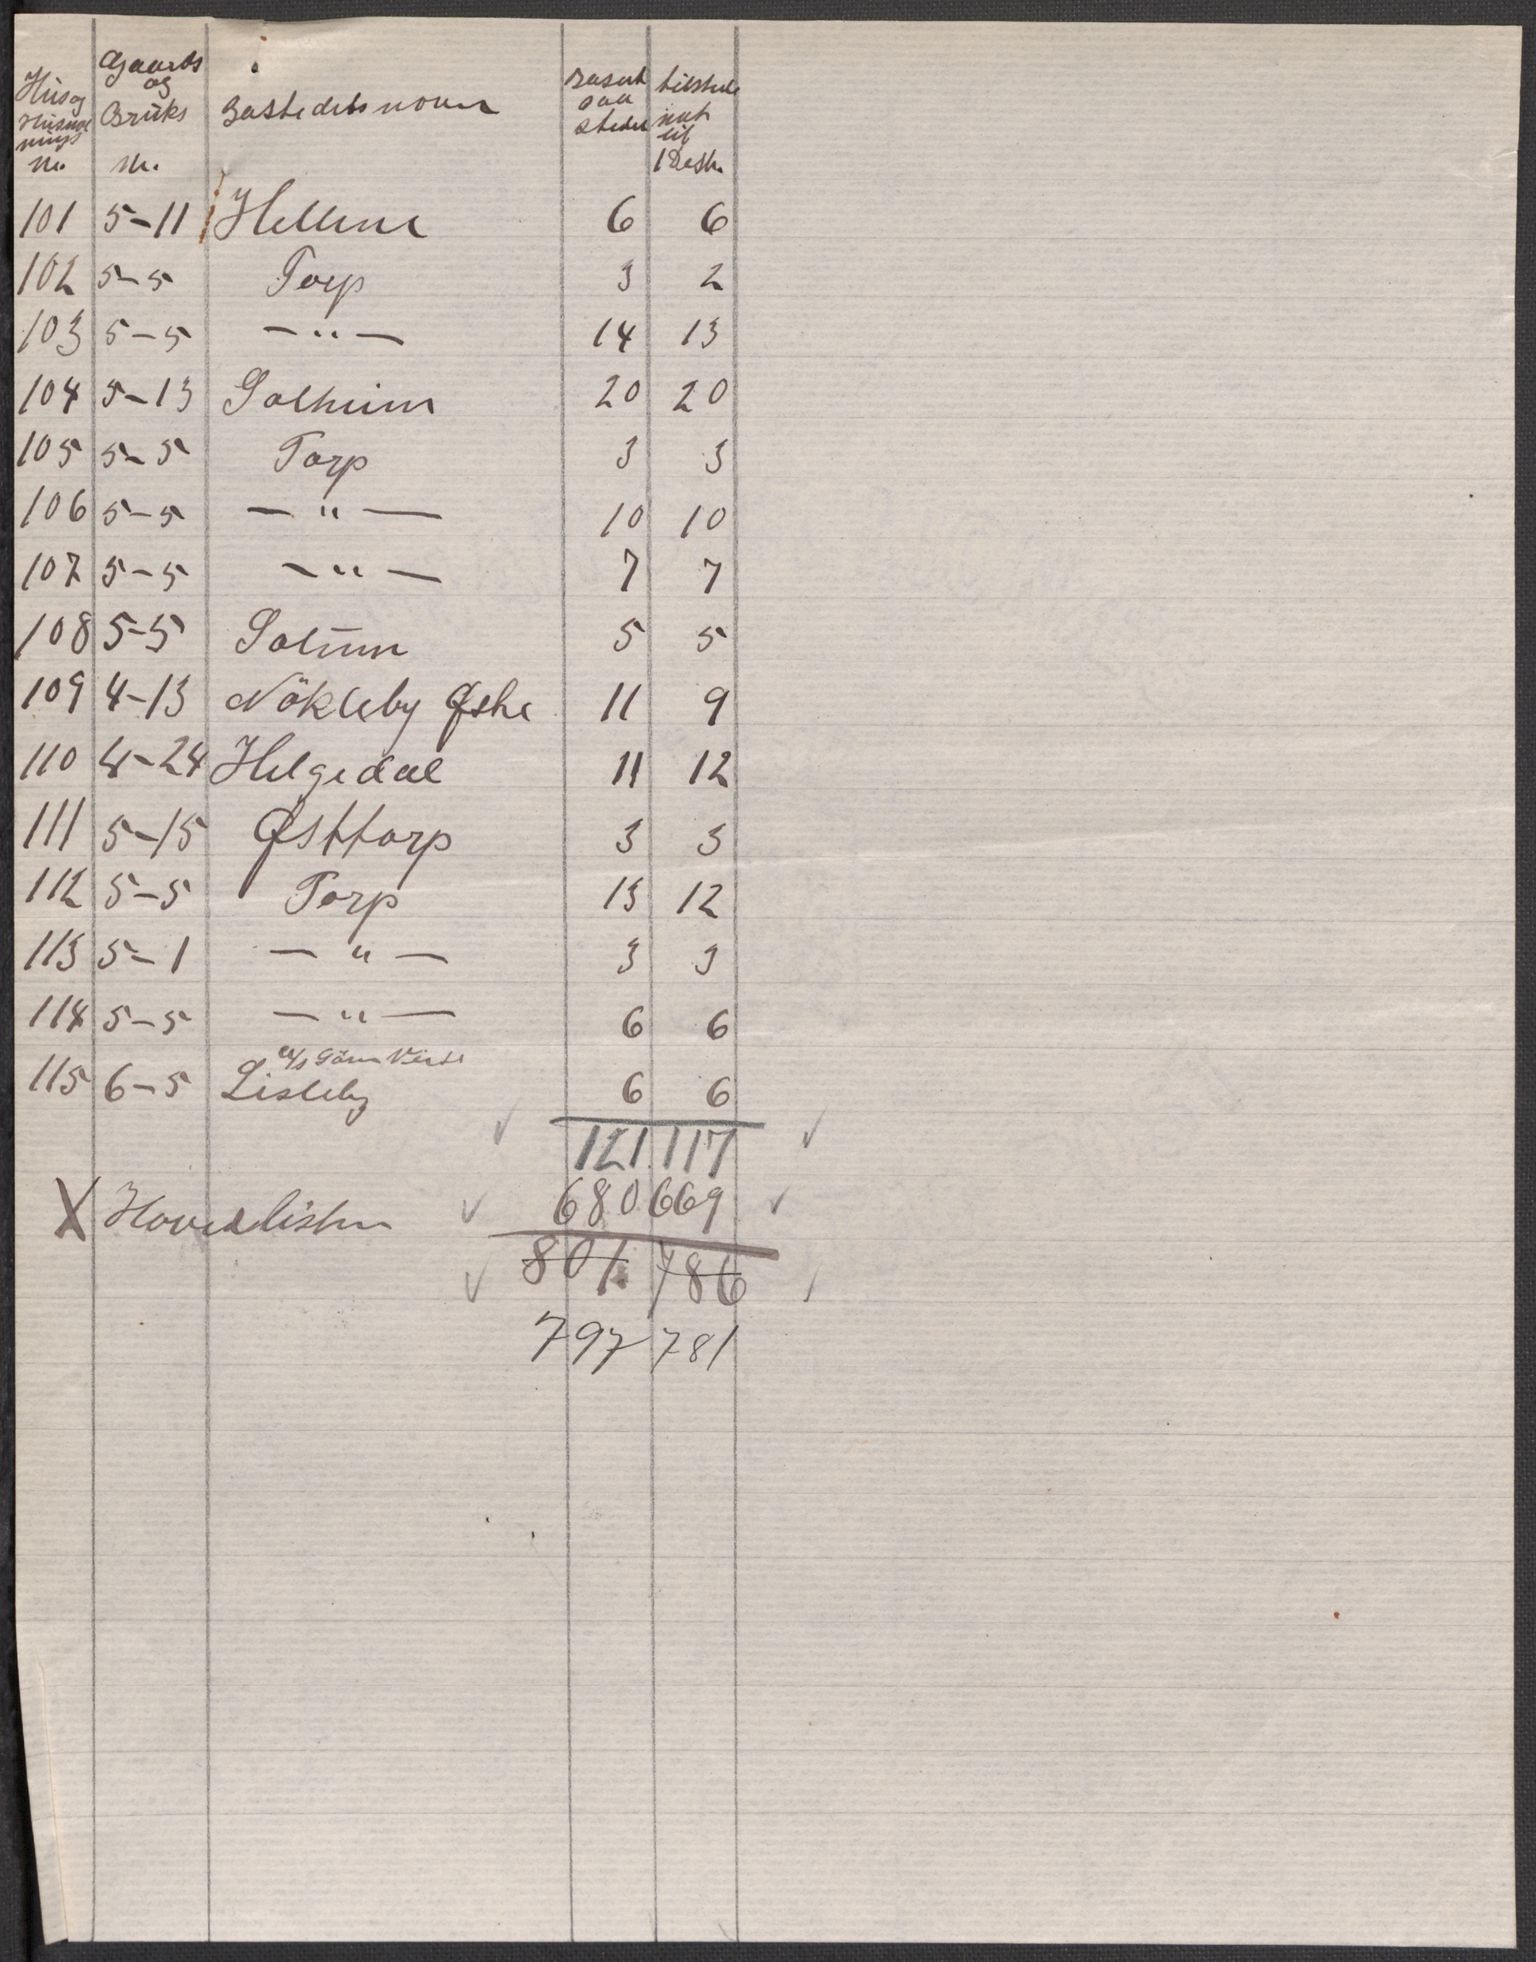 Hus og Husholdnings Nr. Gaards og Bruks Nr. Bostedets navn Bosatt paa stedet tilstede nat til 1 Desbr.
101 5-11 Helline 6 6
102 5-5 Torp 3 2
103 5-5 —"— 14 13
104 5-13 Solheim 20 20
105 5-5 Torp 3 3
106 5-5 —"— 10 10
107 5-5 —"— 7 7
108 5-5 Solum 5 5
109 4-13 Nökleby Østre 11 9
110 4-24 Helgedal 11 12
111 5-15 Østtorp 3 3
112 5-5 Torp 13 12
113 5-1 —"— 3 3
114 5-5 —"— 6 6
115 6-5 Lisleby 6 6
121 117
X Hovedlisten 680 669
801 786
797 781